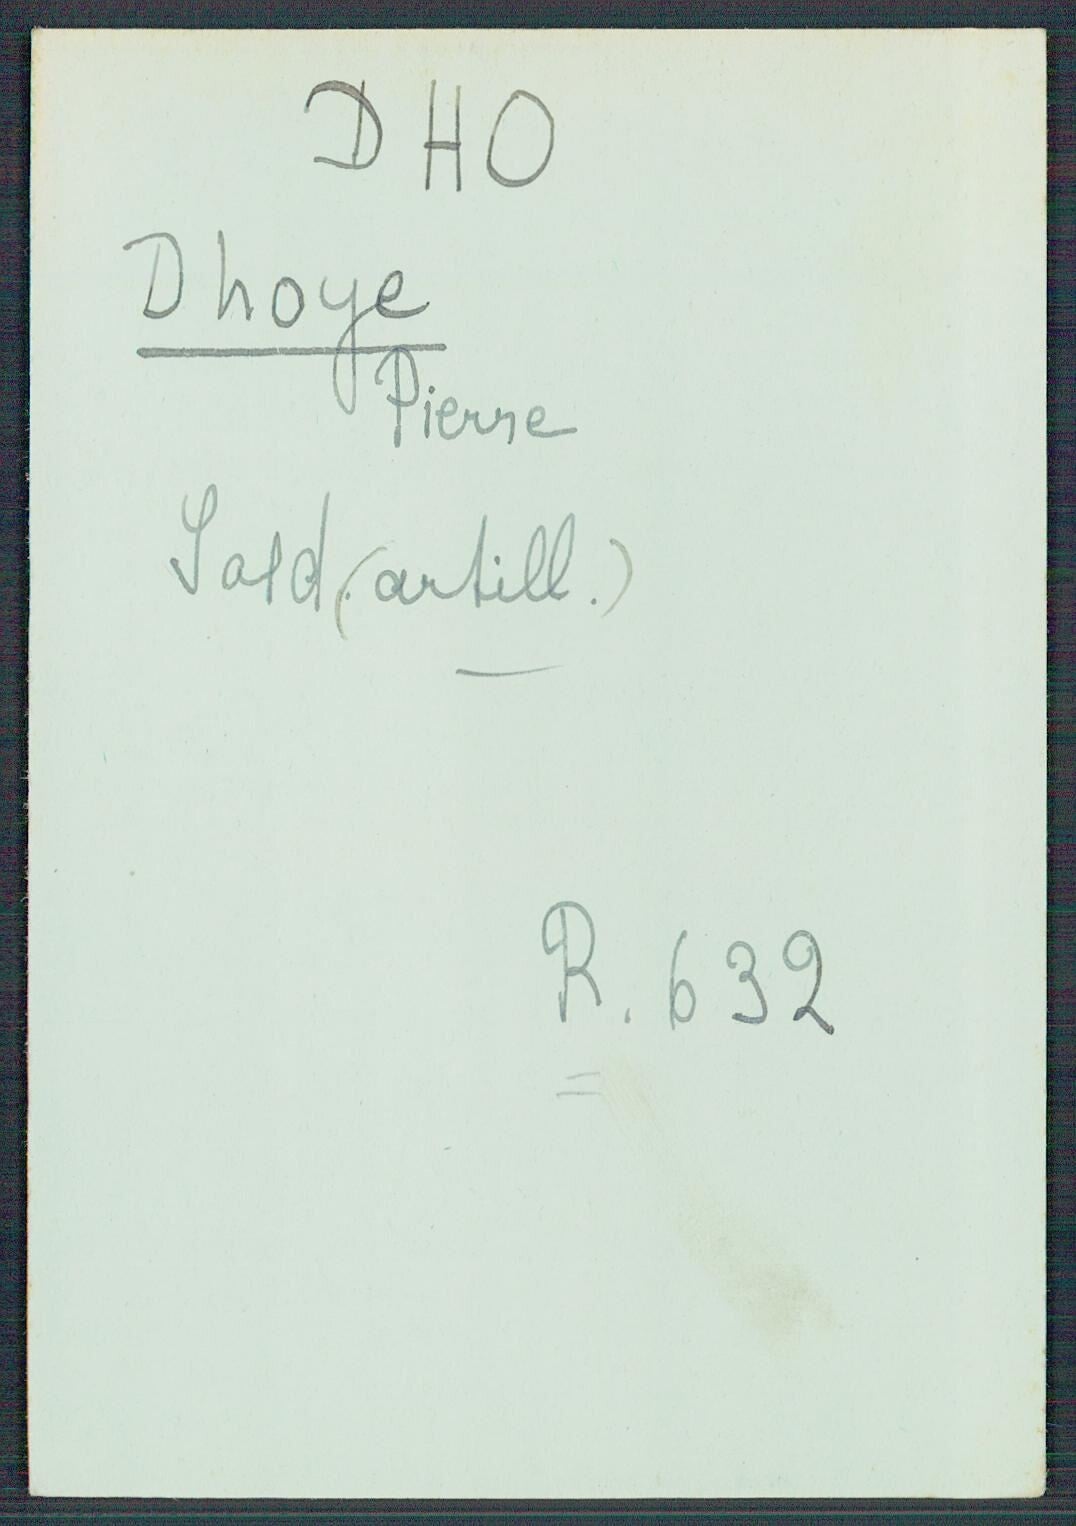 DHO
Dhoye
Pierre
Sold. (artill.)
R. 632